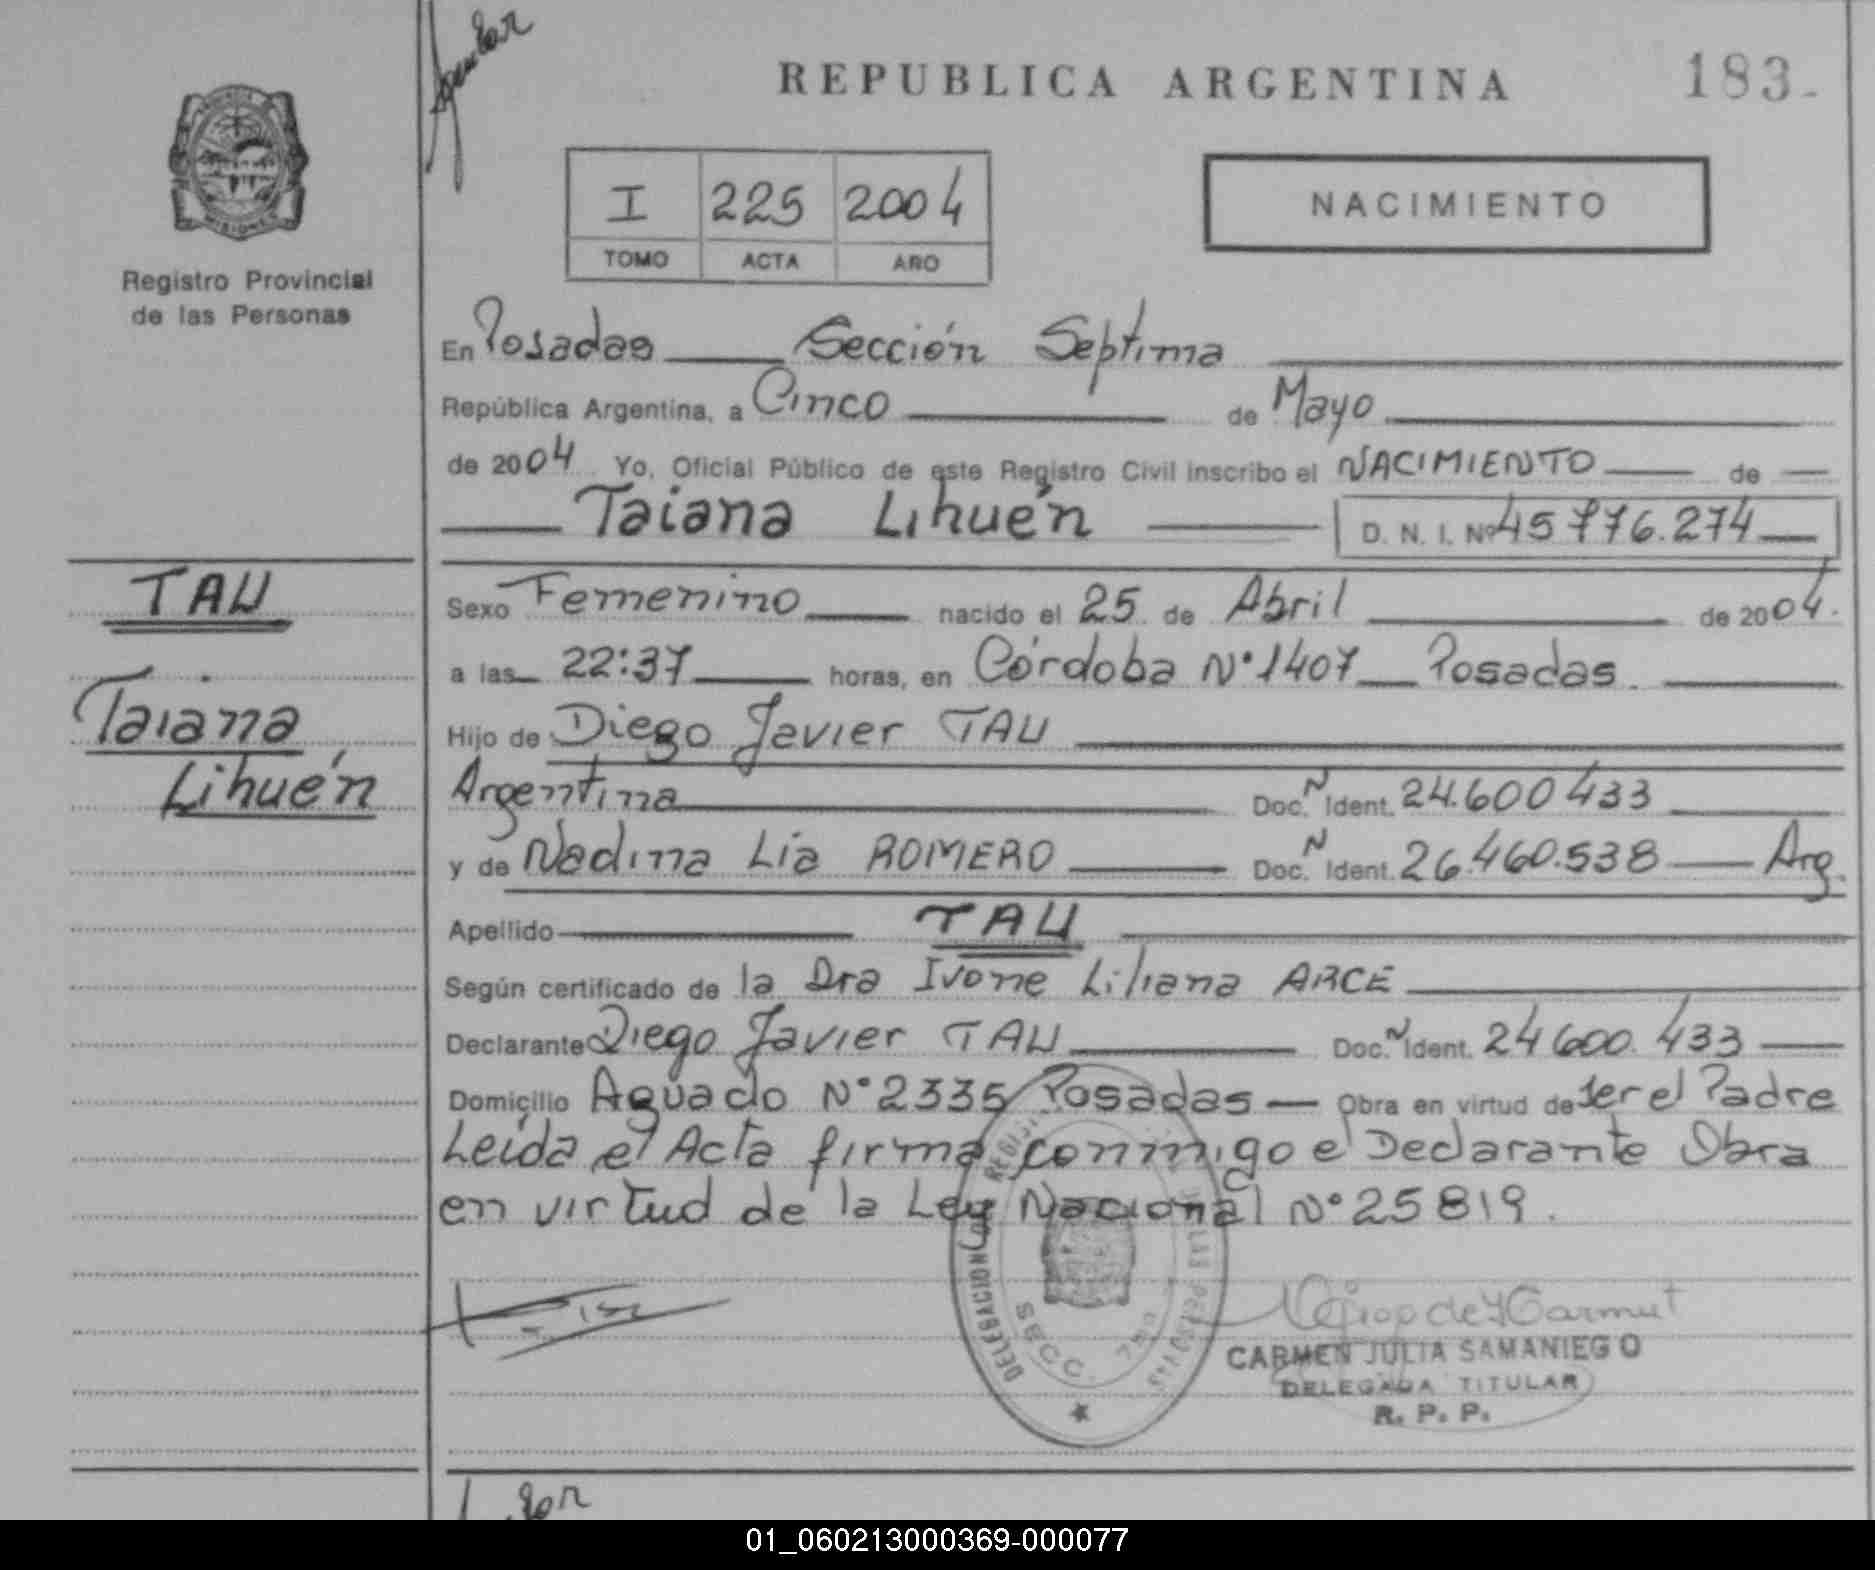 REPUBLICA ARGENTINA 183-
I 225 2004
TOMO ACTA AÑO
NACIMIENTO
Registro Provincial
de las Personas
En Posadas Sección Septima
República Argentina, a Cinco de Mayo
de 2004 Yo, Oficial Público de este Registro Civil inscribo el NACIMIENTO de
Taiana Lihuén D. N. I. Nº 45776.274
TAU
Taiana
Lihuén
Sexo Femenino nacido el 25 de Abril de 2004.
a las 22:37 horas, en Córdoba N° 1407 Posadas.
Hijo de Diego Javier TAU
Argentina Doc. N Ident. 24.600433
y de Nadina Lia ROMERO Doc. N Ident. 26.460.538 Arg.
Apellido TAU
Según certificado de la Dra Ivone Liliana ARCE
Declarante Diego Javier TAU Doc. N Ident. 24600.433
Domicilio Aguado N° 2335 Posadas Obra en virtud de ser el Padre
Leida el Acta firma conmigo el Declarante Obra
en virtud de la Ley Nacional N° 25819.
DELEGACION
SECC. 7ma
CARMEN JULIA SAMANIEGO
DELEGADA TITULAR
R. P. P.
01_060213000369-000077